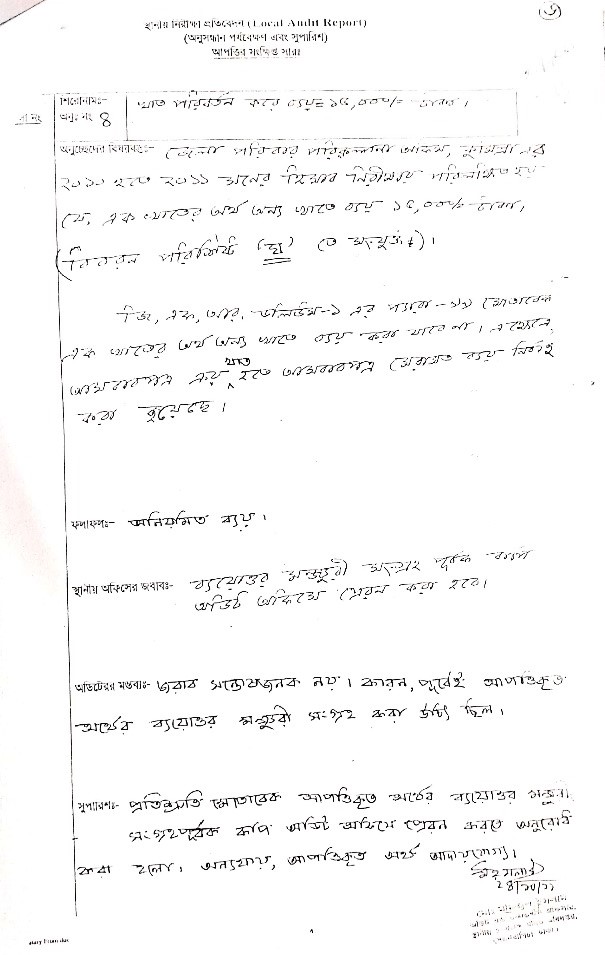 স্থানীয় নিরীক্ষা প্রতিবেদন (Local Audit Report)
(অনুসন্ধান পর্যবেক্ষণ এবং সুপারিশ)
আপত্তির সংক্ষিপ্ত সারঃ
শিরোনামঃ- খাত পরিবর্তন করে ব্যয়ঃ ১৫,০০০/- টাকা।
অনুঃ নং ৪
অনুচ্ছেদের বিষয়বস্তুঃ- জেলা পরিবার পরিকল্পনা অফিস, এর
২০১০ হতে ২০১১ সনের হিসাব নিরীক্ষায় পরিলক্ষিত হয়
যে, এক খাতের অর্থ অন্য খাতে ব্যয় ১৫,০০০/- টাকা,
(বিবরন পরিশিষ্ট তে সংযুক্ত)।
জি, এফ, আর, ভলিউম-১ এর প্যারা-১১ মোতাবেক
এক খাতের অর্থ অন্য খাতে ব্যয় করা যাবে না। এখানে,
আসবাবপত্র ক্রয় খাত হতে আসবাবপত্র মেরামত ব্যয় নির্বাহ
করা হয়েছে।
ফলাফলঃ- অনিয়মিত ব্যয়।
স্থানীয় অফিসের জবাবঃ- ব্যয়োত্তর মঞ্জুরী সংগ্রহ পূর্বক
অডিট অফিসে প্রেরন করা হবে।
অডিটরের মন্তব্যঃ- জবাব সন্তোষজনক নয়। কারন, পূর্বেই আপত্তিকৃত
অর্থের ব্যয়োত্তর মঞ্জুরী সংগ্রহ করা উচিৎ ছিল।
সুপারিশঃ- প্রতিশ্রুতি মোতাবেক আপত্তিকৃত অর্থের ব্যয়োত্তর মঞ্জুরী
সংগ্রহপূর্বক কপি অডিট অফিসে প্রেরন করতে অনুরোধ
করা হলো। অন্যথায়, আপত্তিকৃত অর্থ আদায়যোগ্য।